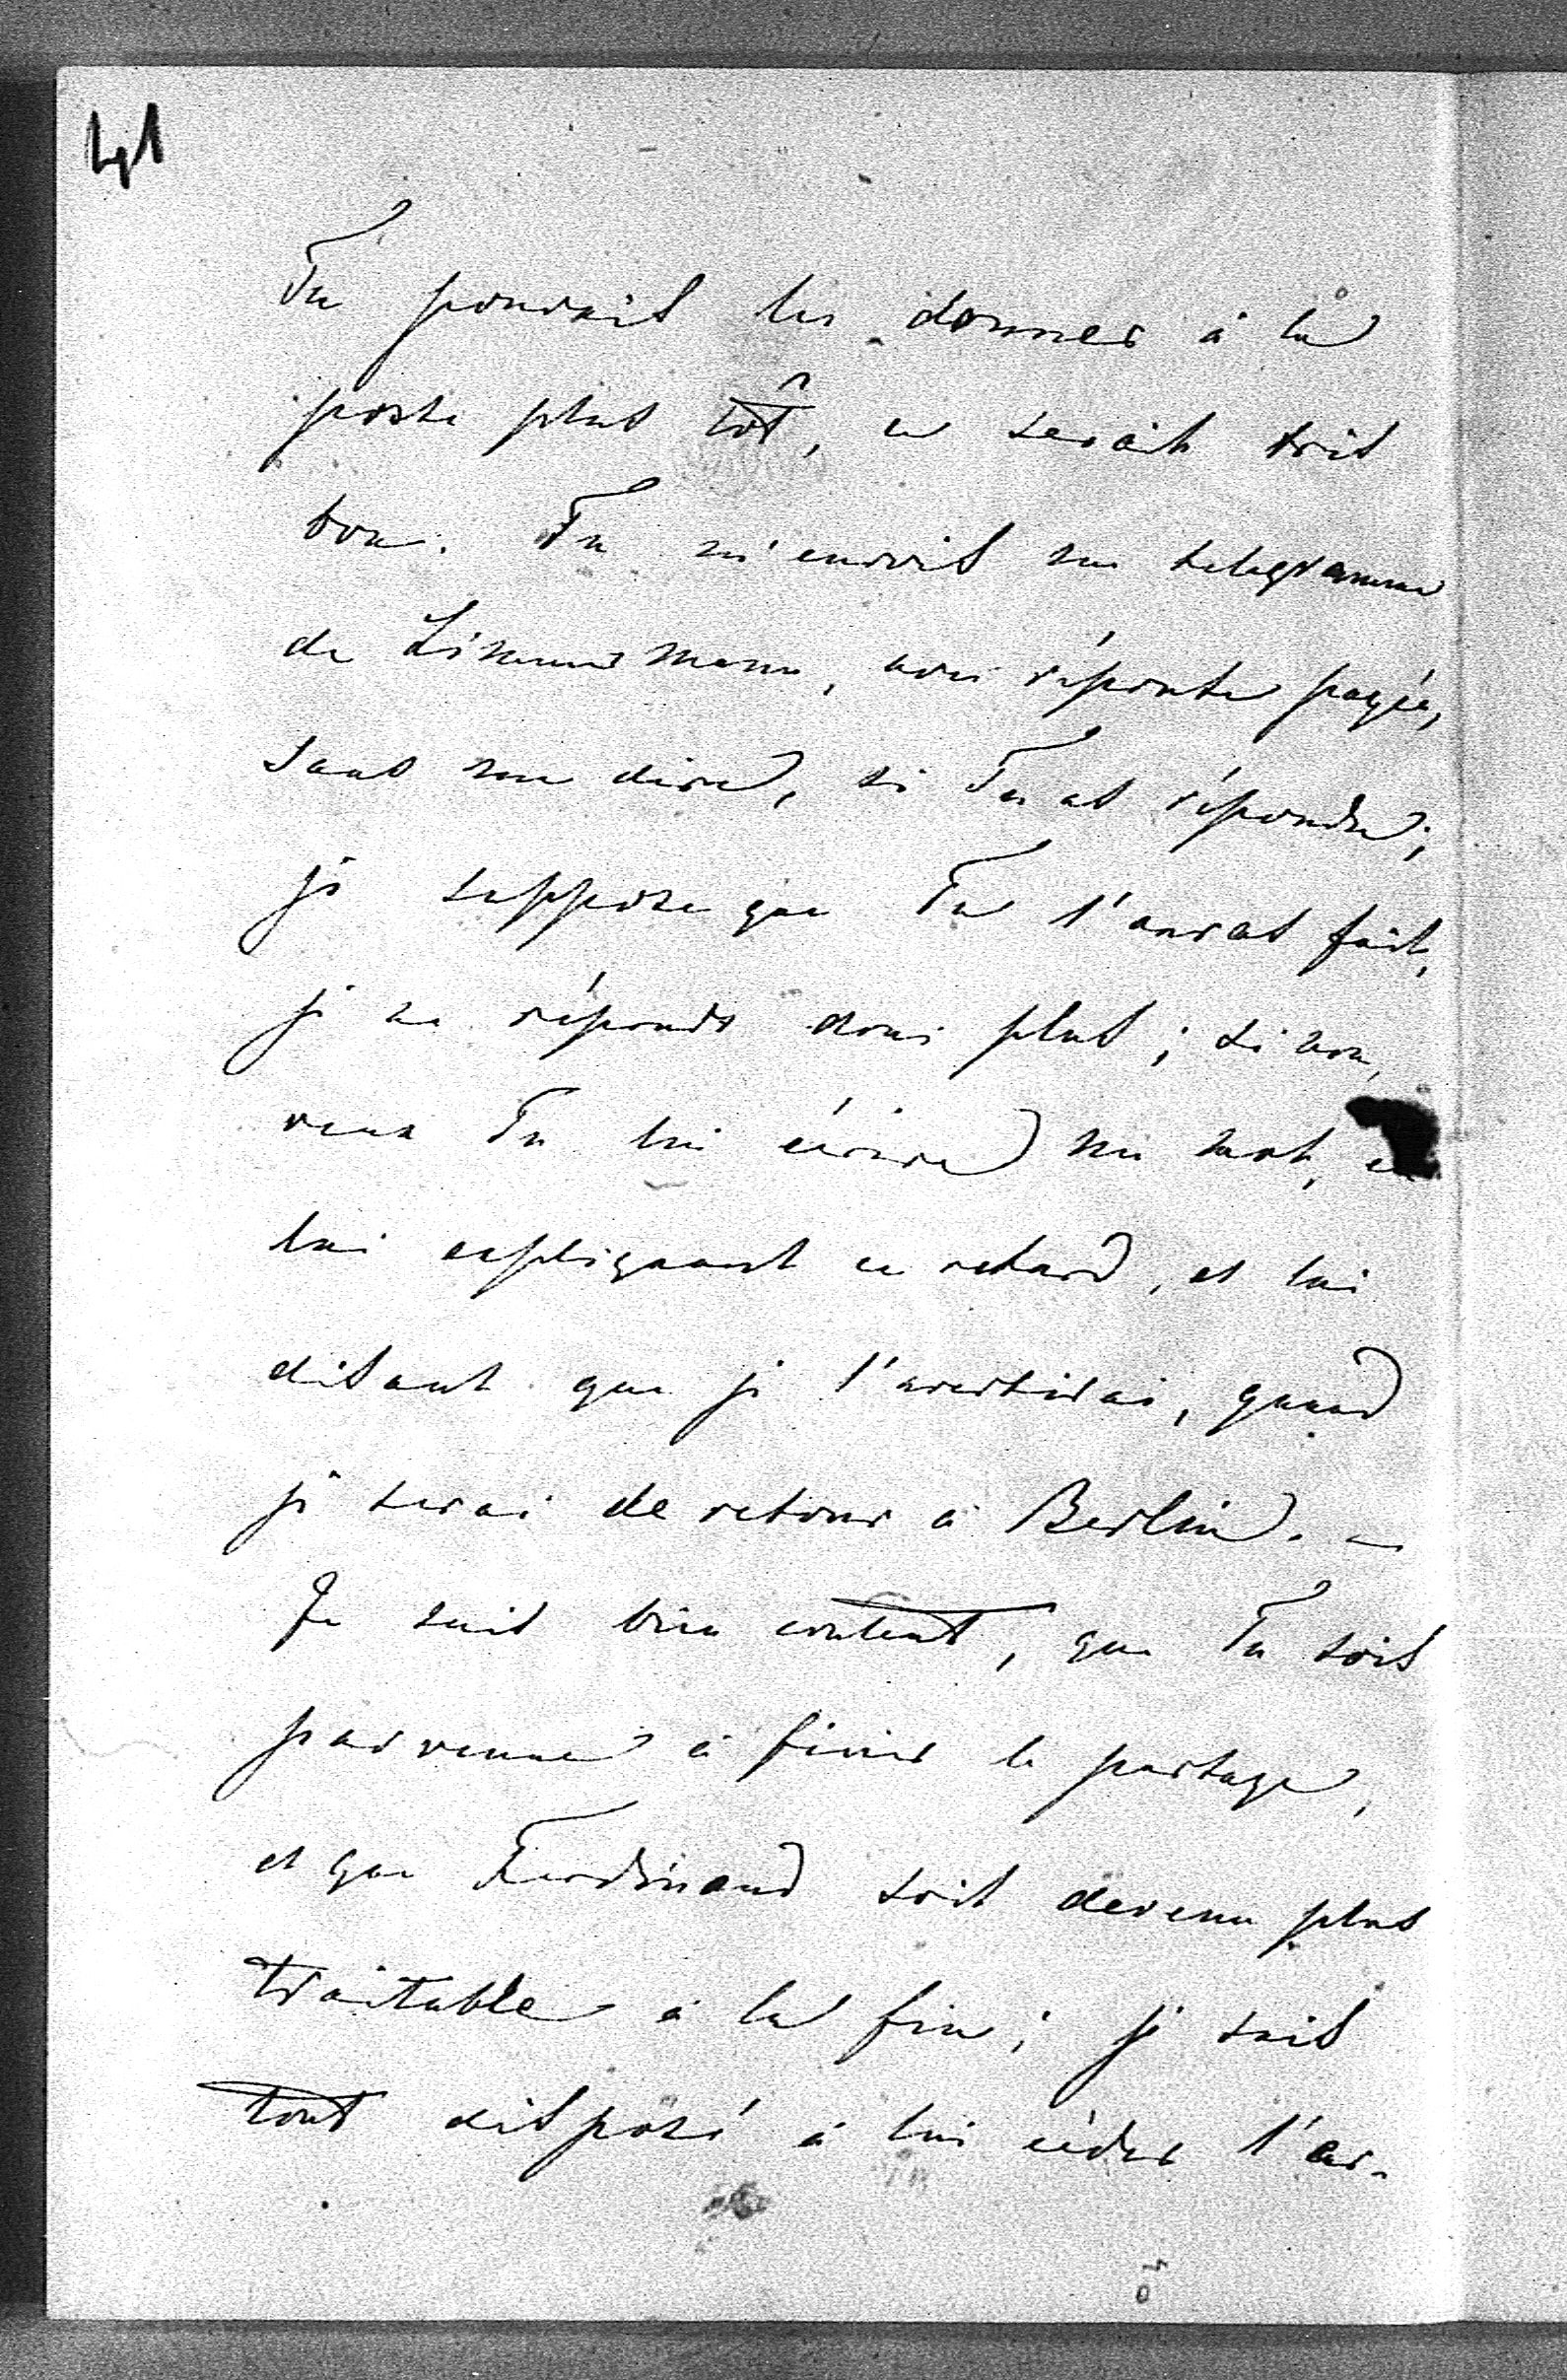 41
Tu pourrais les donner à la
poste plus tôt, ce serait très
bon. Tu m'envois un telegramme
de avec réponse payée,
sans me dire, si Tu as répondu;
je suppose que Tu l'auras fait,
je ne réponds donc plus; si non,
veux Tu lui écrire un mot, en
lui expliquant ce retard, et lui
disant que je l'avertirai, quand
je serai de retour à Berlin. –
Je suis bien content, que Tu sois
parvenue à finir le partage,
et que Ferdinand soit devenu plus
traitable à la fin; je suis
tout disposé à lui céder l'ar-